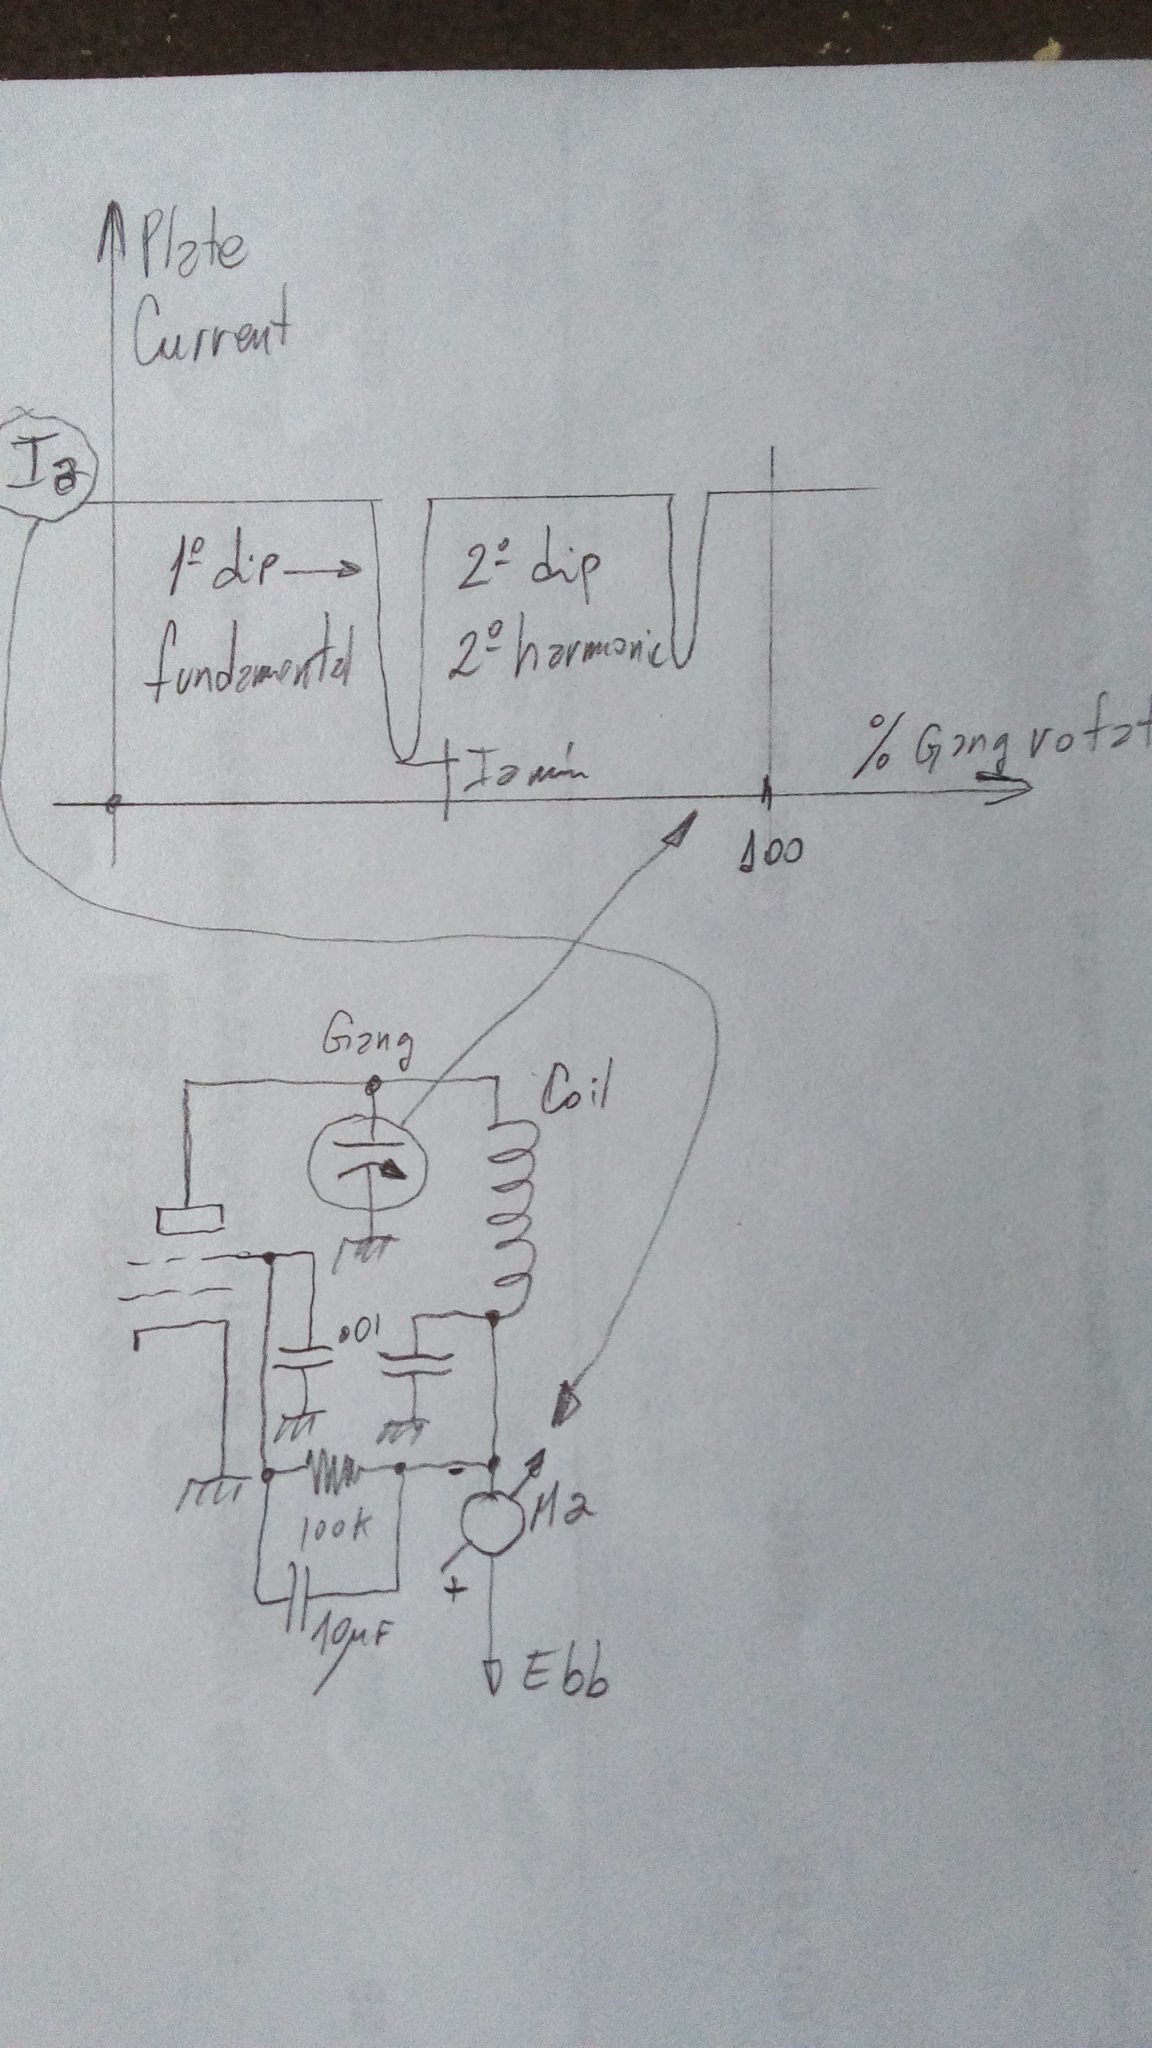 Plate
Current
Ia
1º dip
fundamental
2º dip
2º harmonic
Ia min
% Gang rotat
100
Gang
Coil
.01
100K
Ma
+
10µF
Ebb